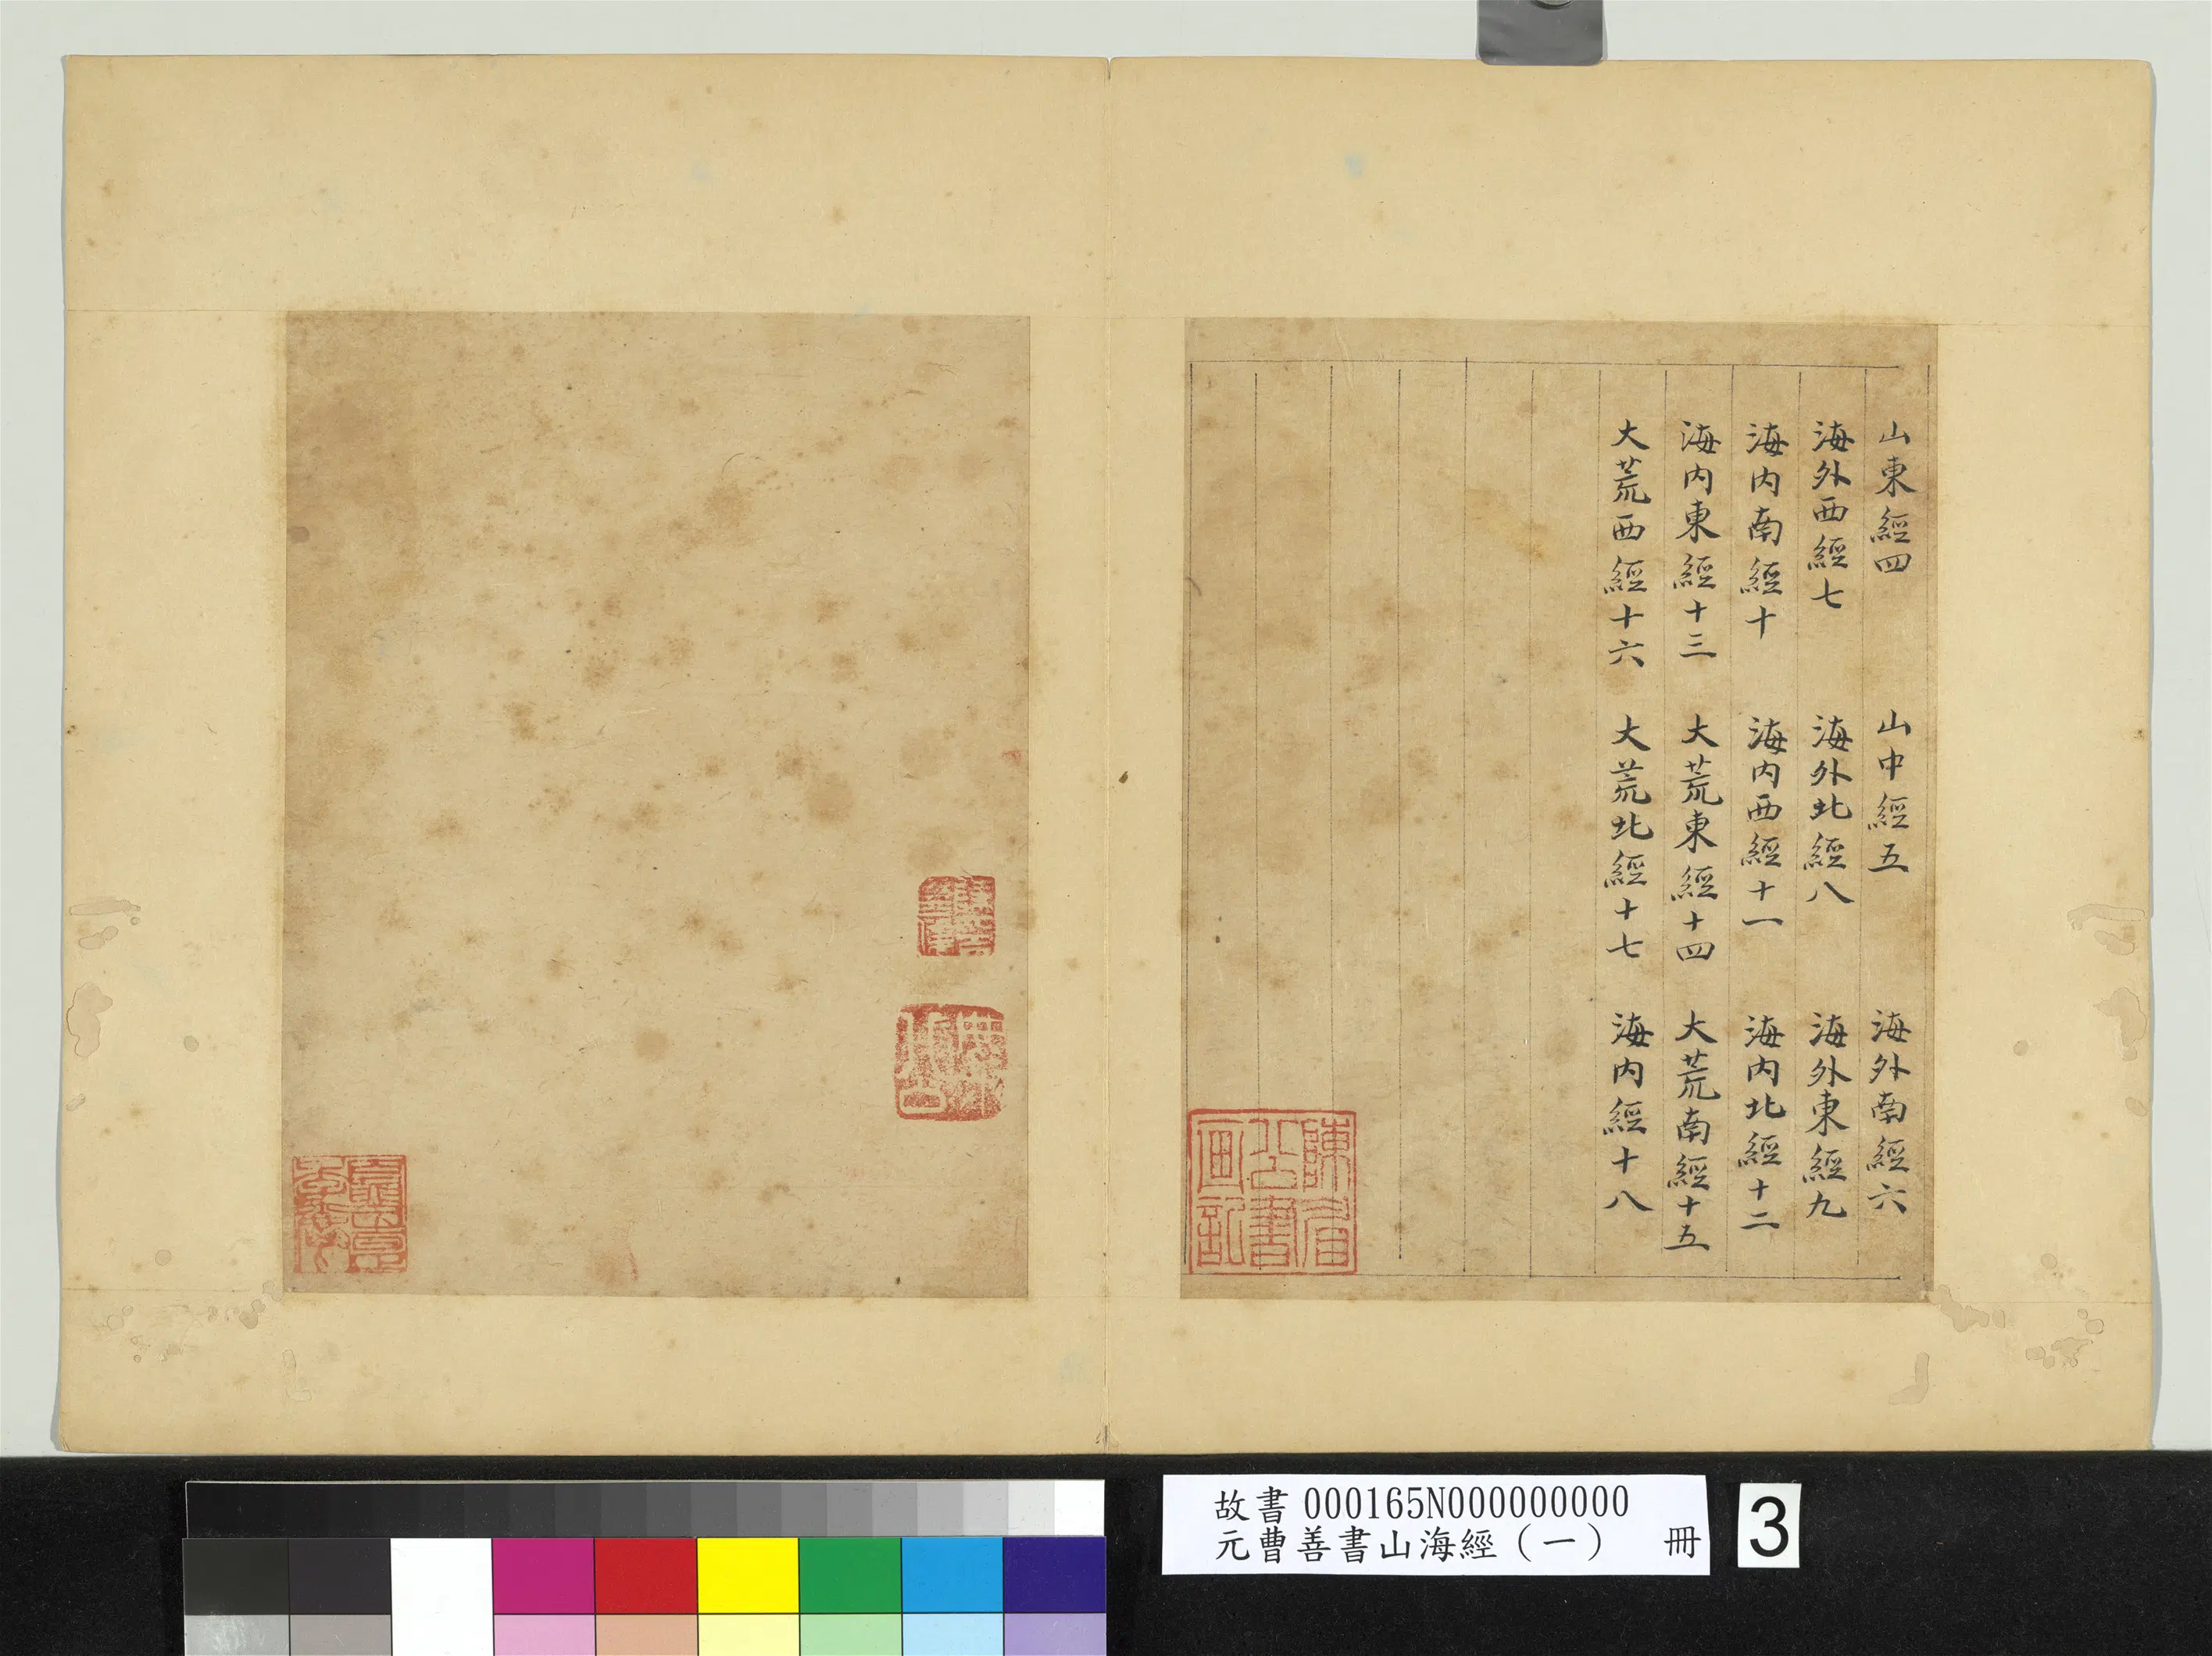 山東經四　山中經五　海外南經六
海外西經七　海外北經八　海外東經九
海内南經十　海内西經十一　海内北經十二
海内東經十三　大荒東經十四　大荒南經十五
大荒西經十六　大荒北經十七　海内經十八
陳眉
公書
画記
故書 000165N000000000
元曹善書山海經（一）　冊
3